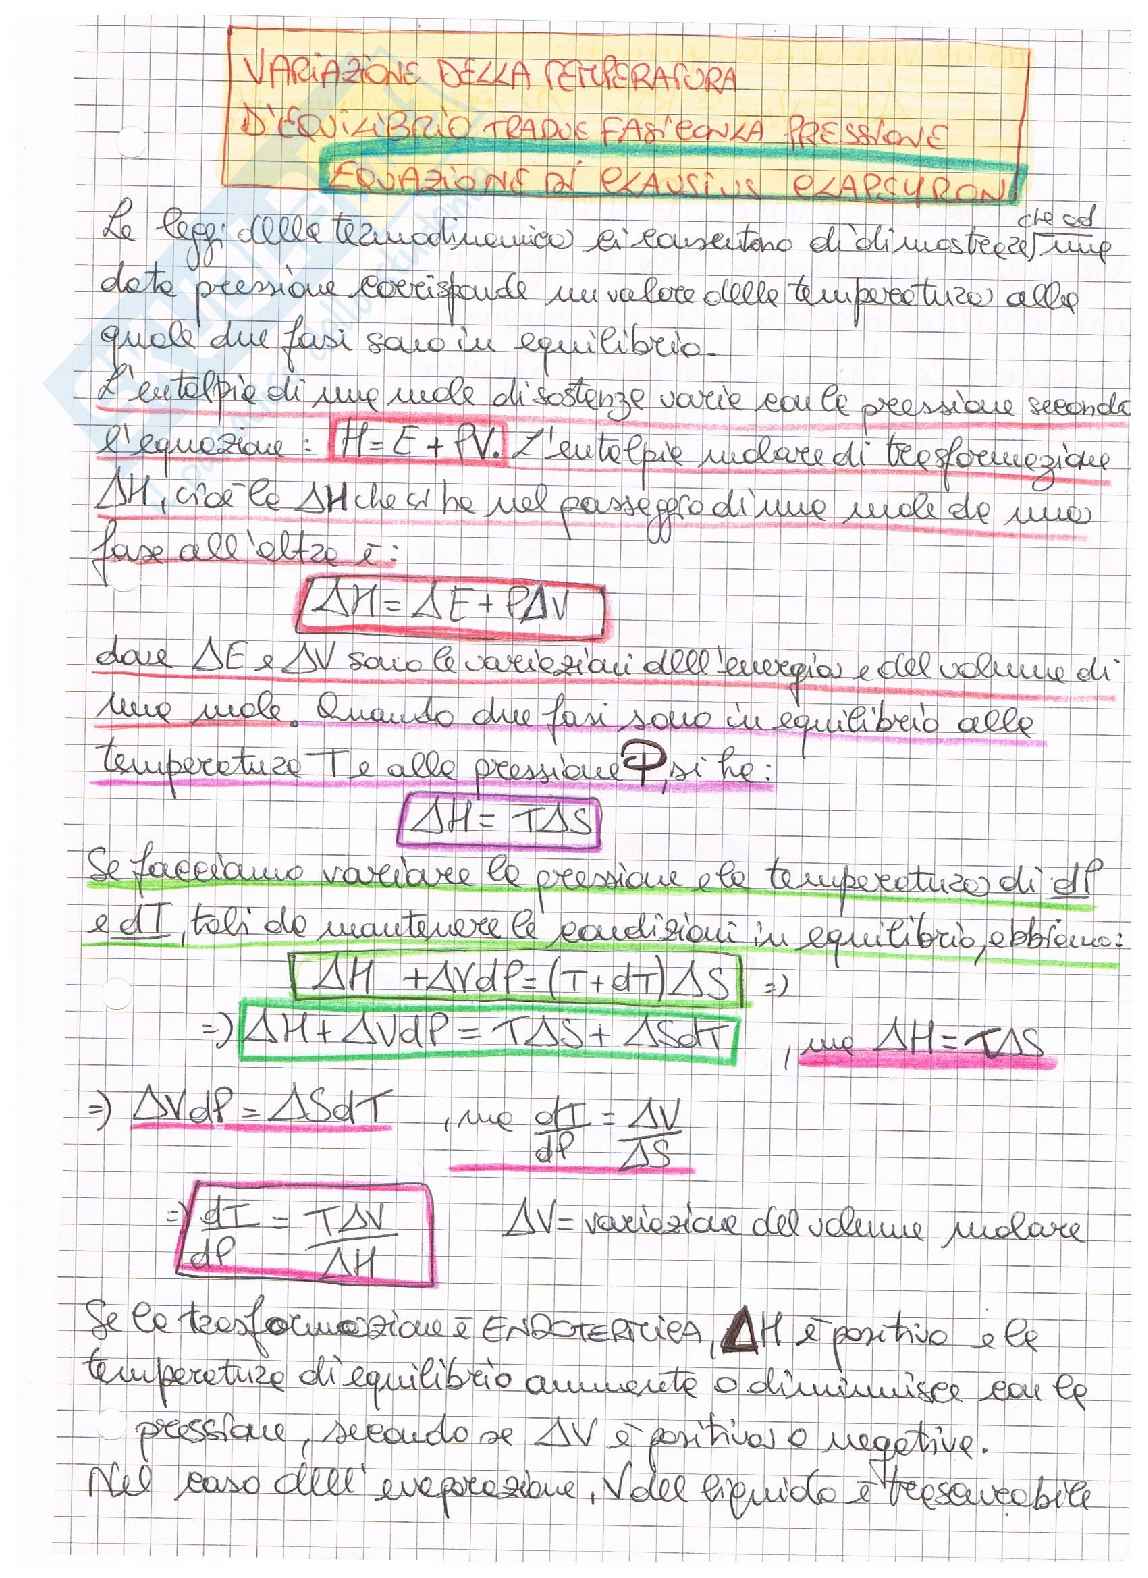 VARIAZIONE DELLA TEMPERATURA
D'EQUILIBRIO TRA DUE FASI CON LA PRESSIONE
EQUAZIONE DI CLAUSIUS CLAPEYRON
Le leggi della termodinamica ci consentono di dimostrare che ad una
data pressione corrisponde un valore della temperatura alla
quale due fasi sono in equilibrio.
L'entalpia di una mole di sostanza varia con la pressione secondo
l'equazione: H = E + PV. L'entalpia molare di trasformazione
ΔH, cioè la ΔH che si ha nel passaggio di una mole da una
fase all'altra è:
ΔH = ΔE + PΔV
dove ΔE e ΔV sono le variazioni dell'energia e del volume di
una mole. Quando due fasi sono in equilibrio alla
temperatura T e alla pressione P, si ha:
ΔH = TΔS
Se facciamo variare la pressione e la temperatura di dP
e dT, tali da mantenere le condizioni in equilibrio, abbiamo:
ΔH + ΔVdP = (T + dT) ΔS =>
=> ΔH + ΔVdP = TΔS + ΔSdT , ma ΔH = TΔS
=> ΔVdP = ΔSdT , ma dT/dP = ΔV/ΔS
=> dT/dP = TΔV/ΔH ΔV = variazione del volume molare
Se la trasformazione è ENDOTERMICA, ΔH è positivo e la
temperatura di equilibrio aumenta o diminuisce con la
pressione, secondo se ΔV è positivo o negativa.
Nel caso dell'evaporazione, V del liquido è trascurabile